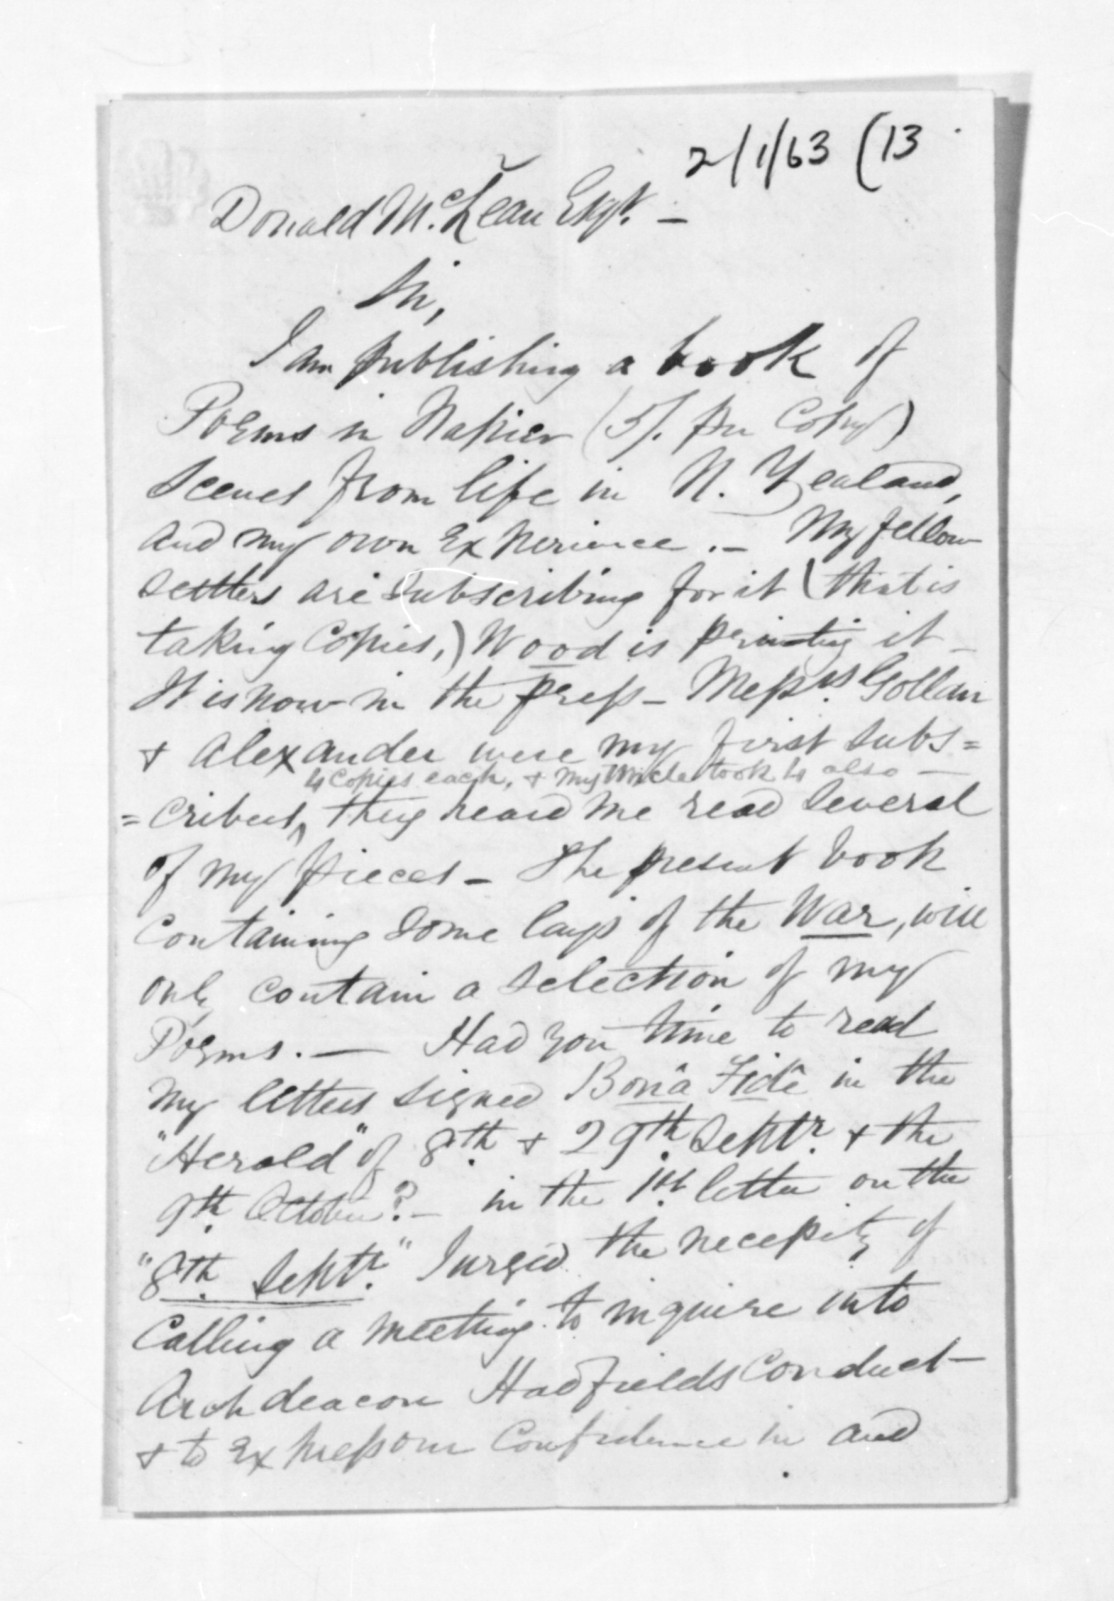 2/1/63 (13
Donald McLean Esqr. -
Sir,
I am publishing a book of
Poems in Napier (5/. per Copy)
Scenes from life in N. Zealand,
and my own Experience. - My fellow
settlers are subscribing for it (that is
taking Copies,) Wood is printing it -
It is now in the press - Messrs. Gollan
& Alexander were my first subs=
4 copies each, & my Uncle took 4 also -
=cribers, they heard me read several
of my pieces - The present book
Containing some lays of the War, will
only contain a selection of my
Poems. - Had you time to read
my letters signed Bonâ Fidê in the
"Herald" of 8th. & 29th Septr. & the
9th. October? - in the 1st. letter on the
"8th. Septr." I urged the necessity of
Calling a meeting to inquire into
Archdeacon Hadfields Conduct -
& to Express our Confidence in and